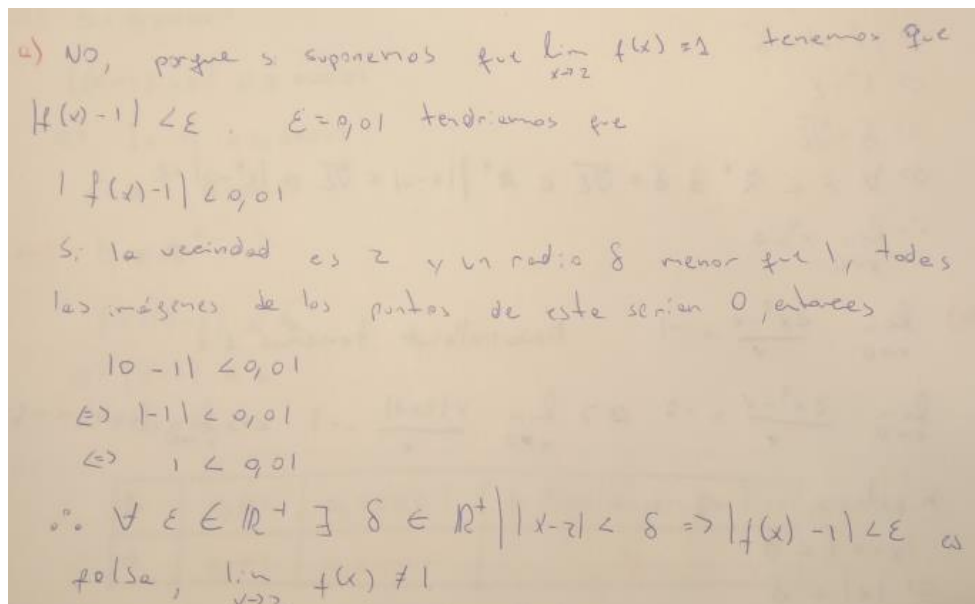 a) NO, porque si suponemos que lim x→2 f(x) = 1 tenemos que
|f(x) - 1| < ε. ε = 0,01 tendriamos que
| f(x) - 1| < 0,01
Si la vecindad es 2 y un radio δ menor que 1, todas
las imágenes de los puntos de este serian 0, entonces
|0 - 1| < 0,01
⇔ |-1| < 0,01
⇔ 1 < 0,01
∴ ∀ ε ∈ ℝ⁺ ∃ δ ∈ ℝ⁺ | |x-2| < δ => |f(x) - 1| < ε es
falsa, lim x→2 f(x) ≠ 1